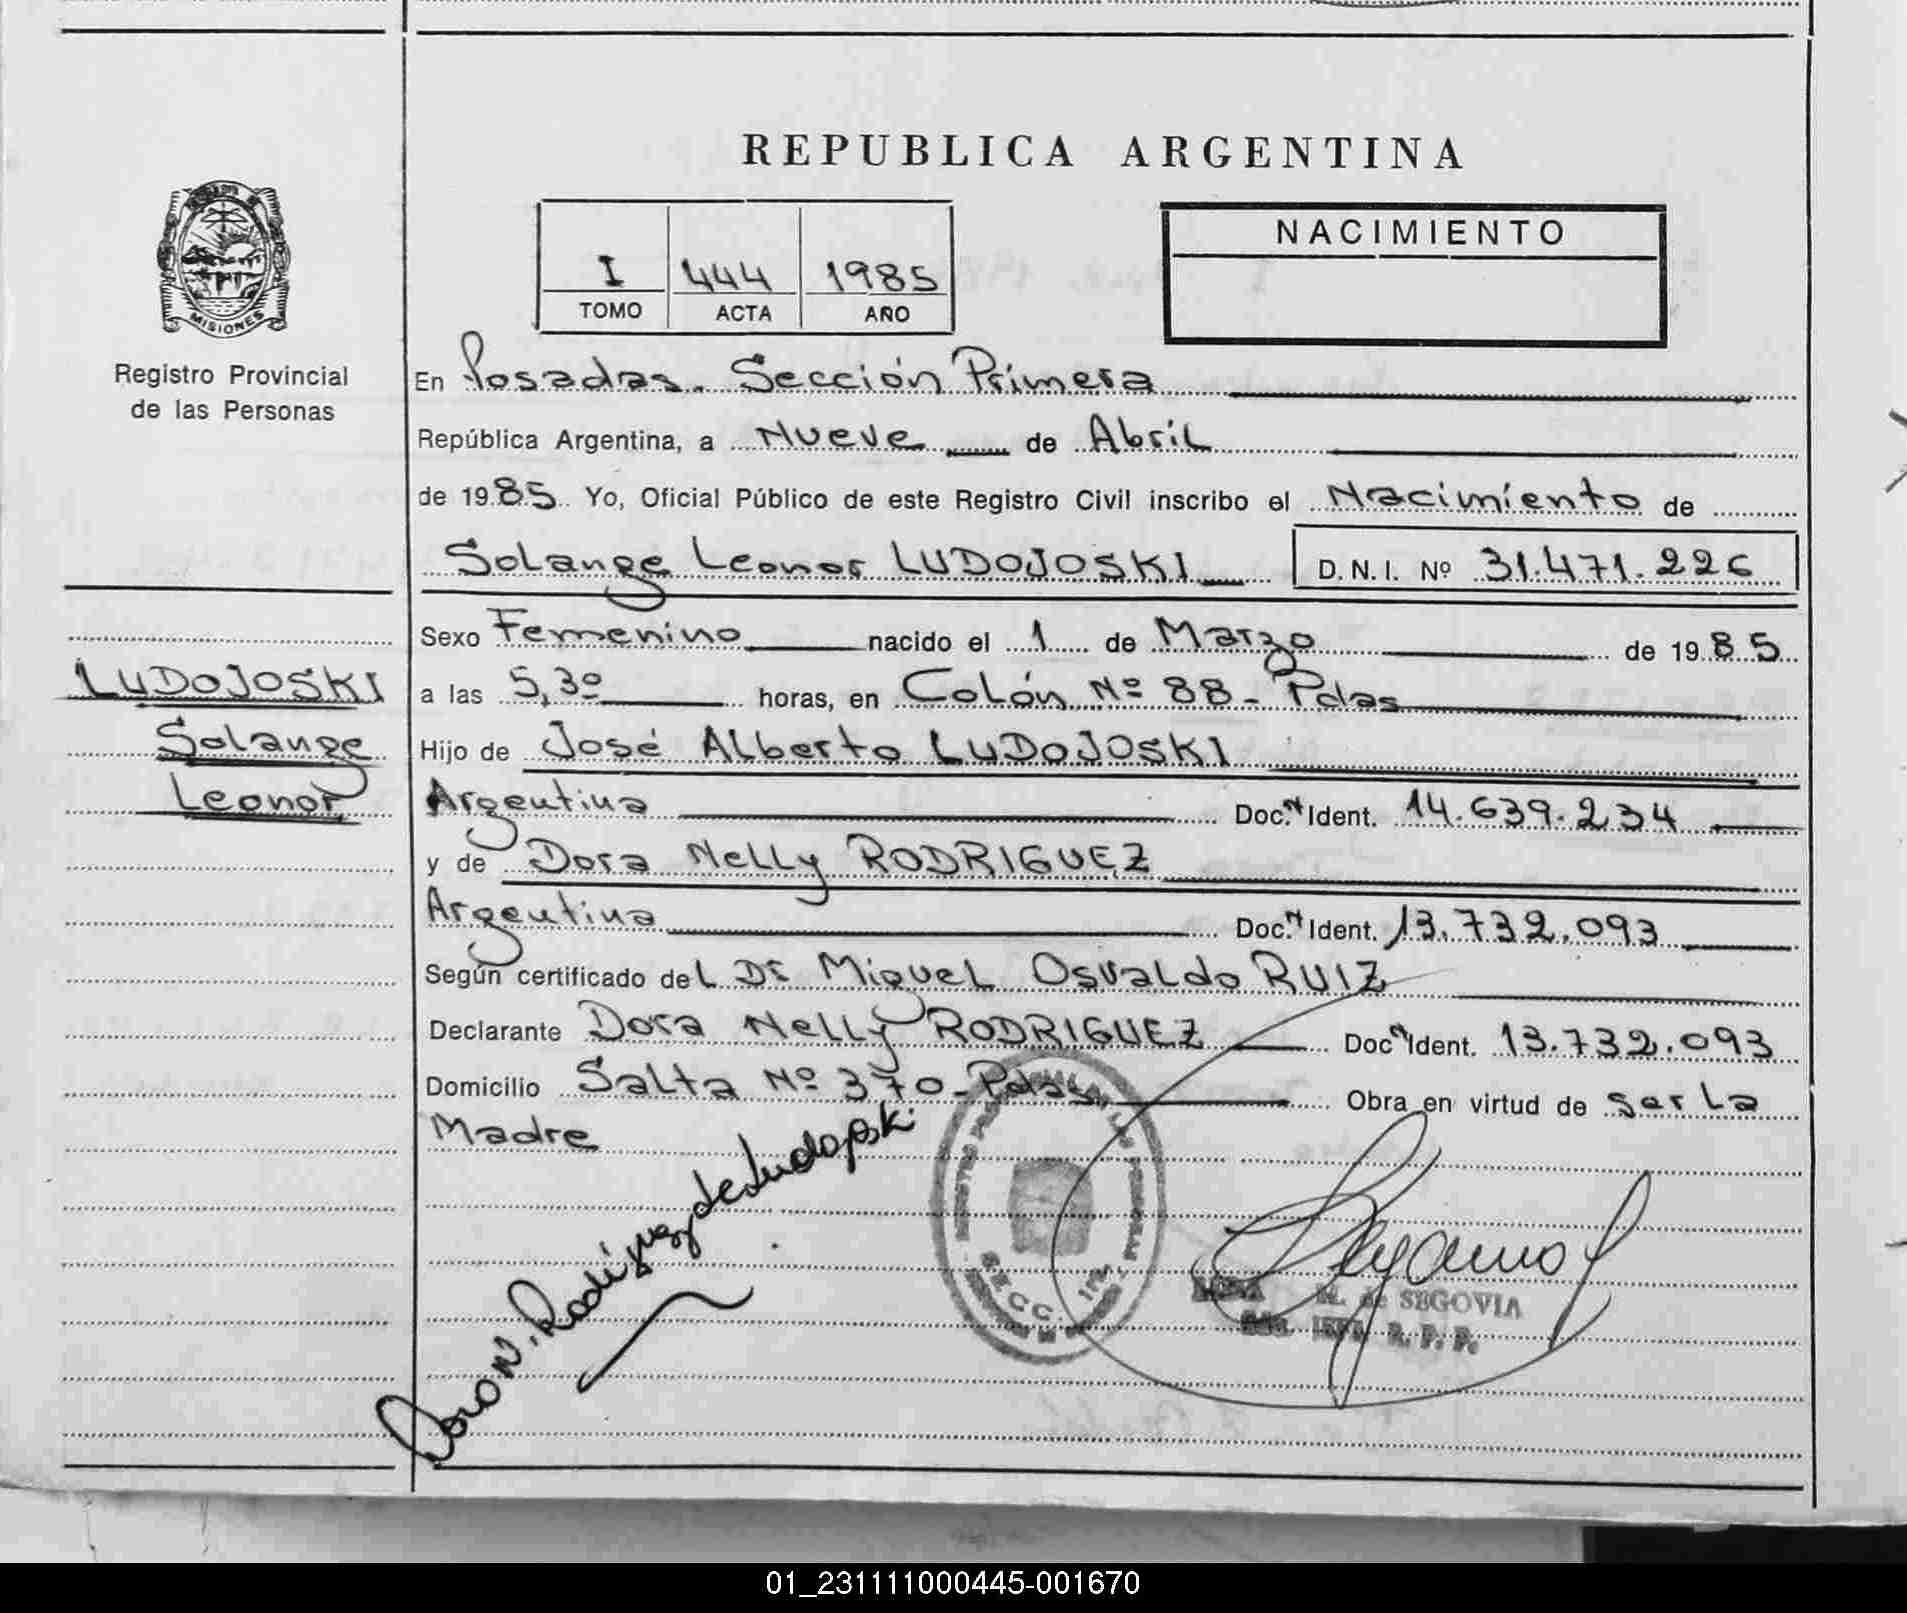 REPUBLICA ARGENTINA
MISIONES
Registro Provincial
de las Personas
I 444 1985
TOMO ACTA AÑO
NACIMIENTO
En Posadas. Sección Primera
República Argentina, a Nueve de Abril
de 1985. Yo, Oficial Público de este Registro Civil inscribo el Nacimiento de
Solange Leonor LUDOJOSKI D.N.I. Nº 31.471.226
Sexo Femenino nacido el 1 de Marzo de 1985
a las 5,30 horas, en Colón Nº 88 - Pdas
Hijo de José Alberto LUDOJOSKI
Argentina Doc. N Ident. 14.639.234
y de Dora Nelly RODRIGUEZ
Argentina Doc. N Ident. 13.732.093
Según certificado del Dr Miguel Osvaldo RUIZ
Declarante Dora Nelly RODRIGUEZ Doc N Ident. 13.732.093
Domicilio Salta Nº 370 - Pdas Obra en virtud de ser la
Madre
LUDOJOSKI
Solange
Leonor
Dora N. Rodriguez de Ludojoski
SECC. 1ra
M. de SEGOVIA
R. P. P.
01_231111000445-001670